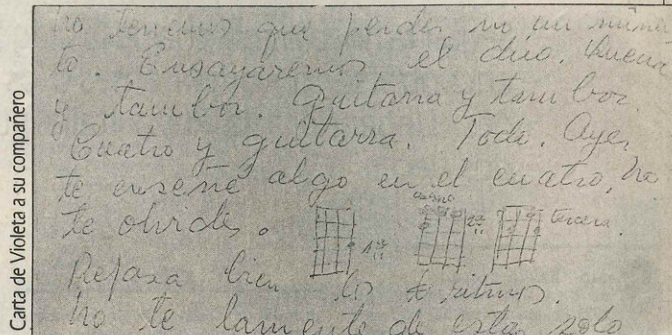 Carta de Violeta a su compañero
no tenemos que perder ni un minu
to. Ensayaremos el dúo. Quena
y tambor. Guitarra y tambor.
Cuatro y guitarra. Todo. Ayer
te enseñé algo en el cuatro, no
te olvides.
1ª 2ª tercera.
Repasa bien los ritmos.
No te lamente de estar solo